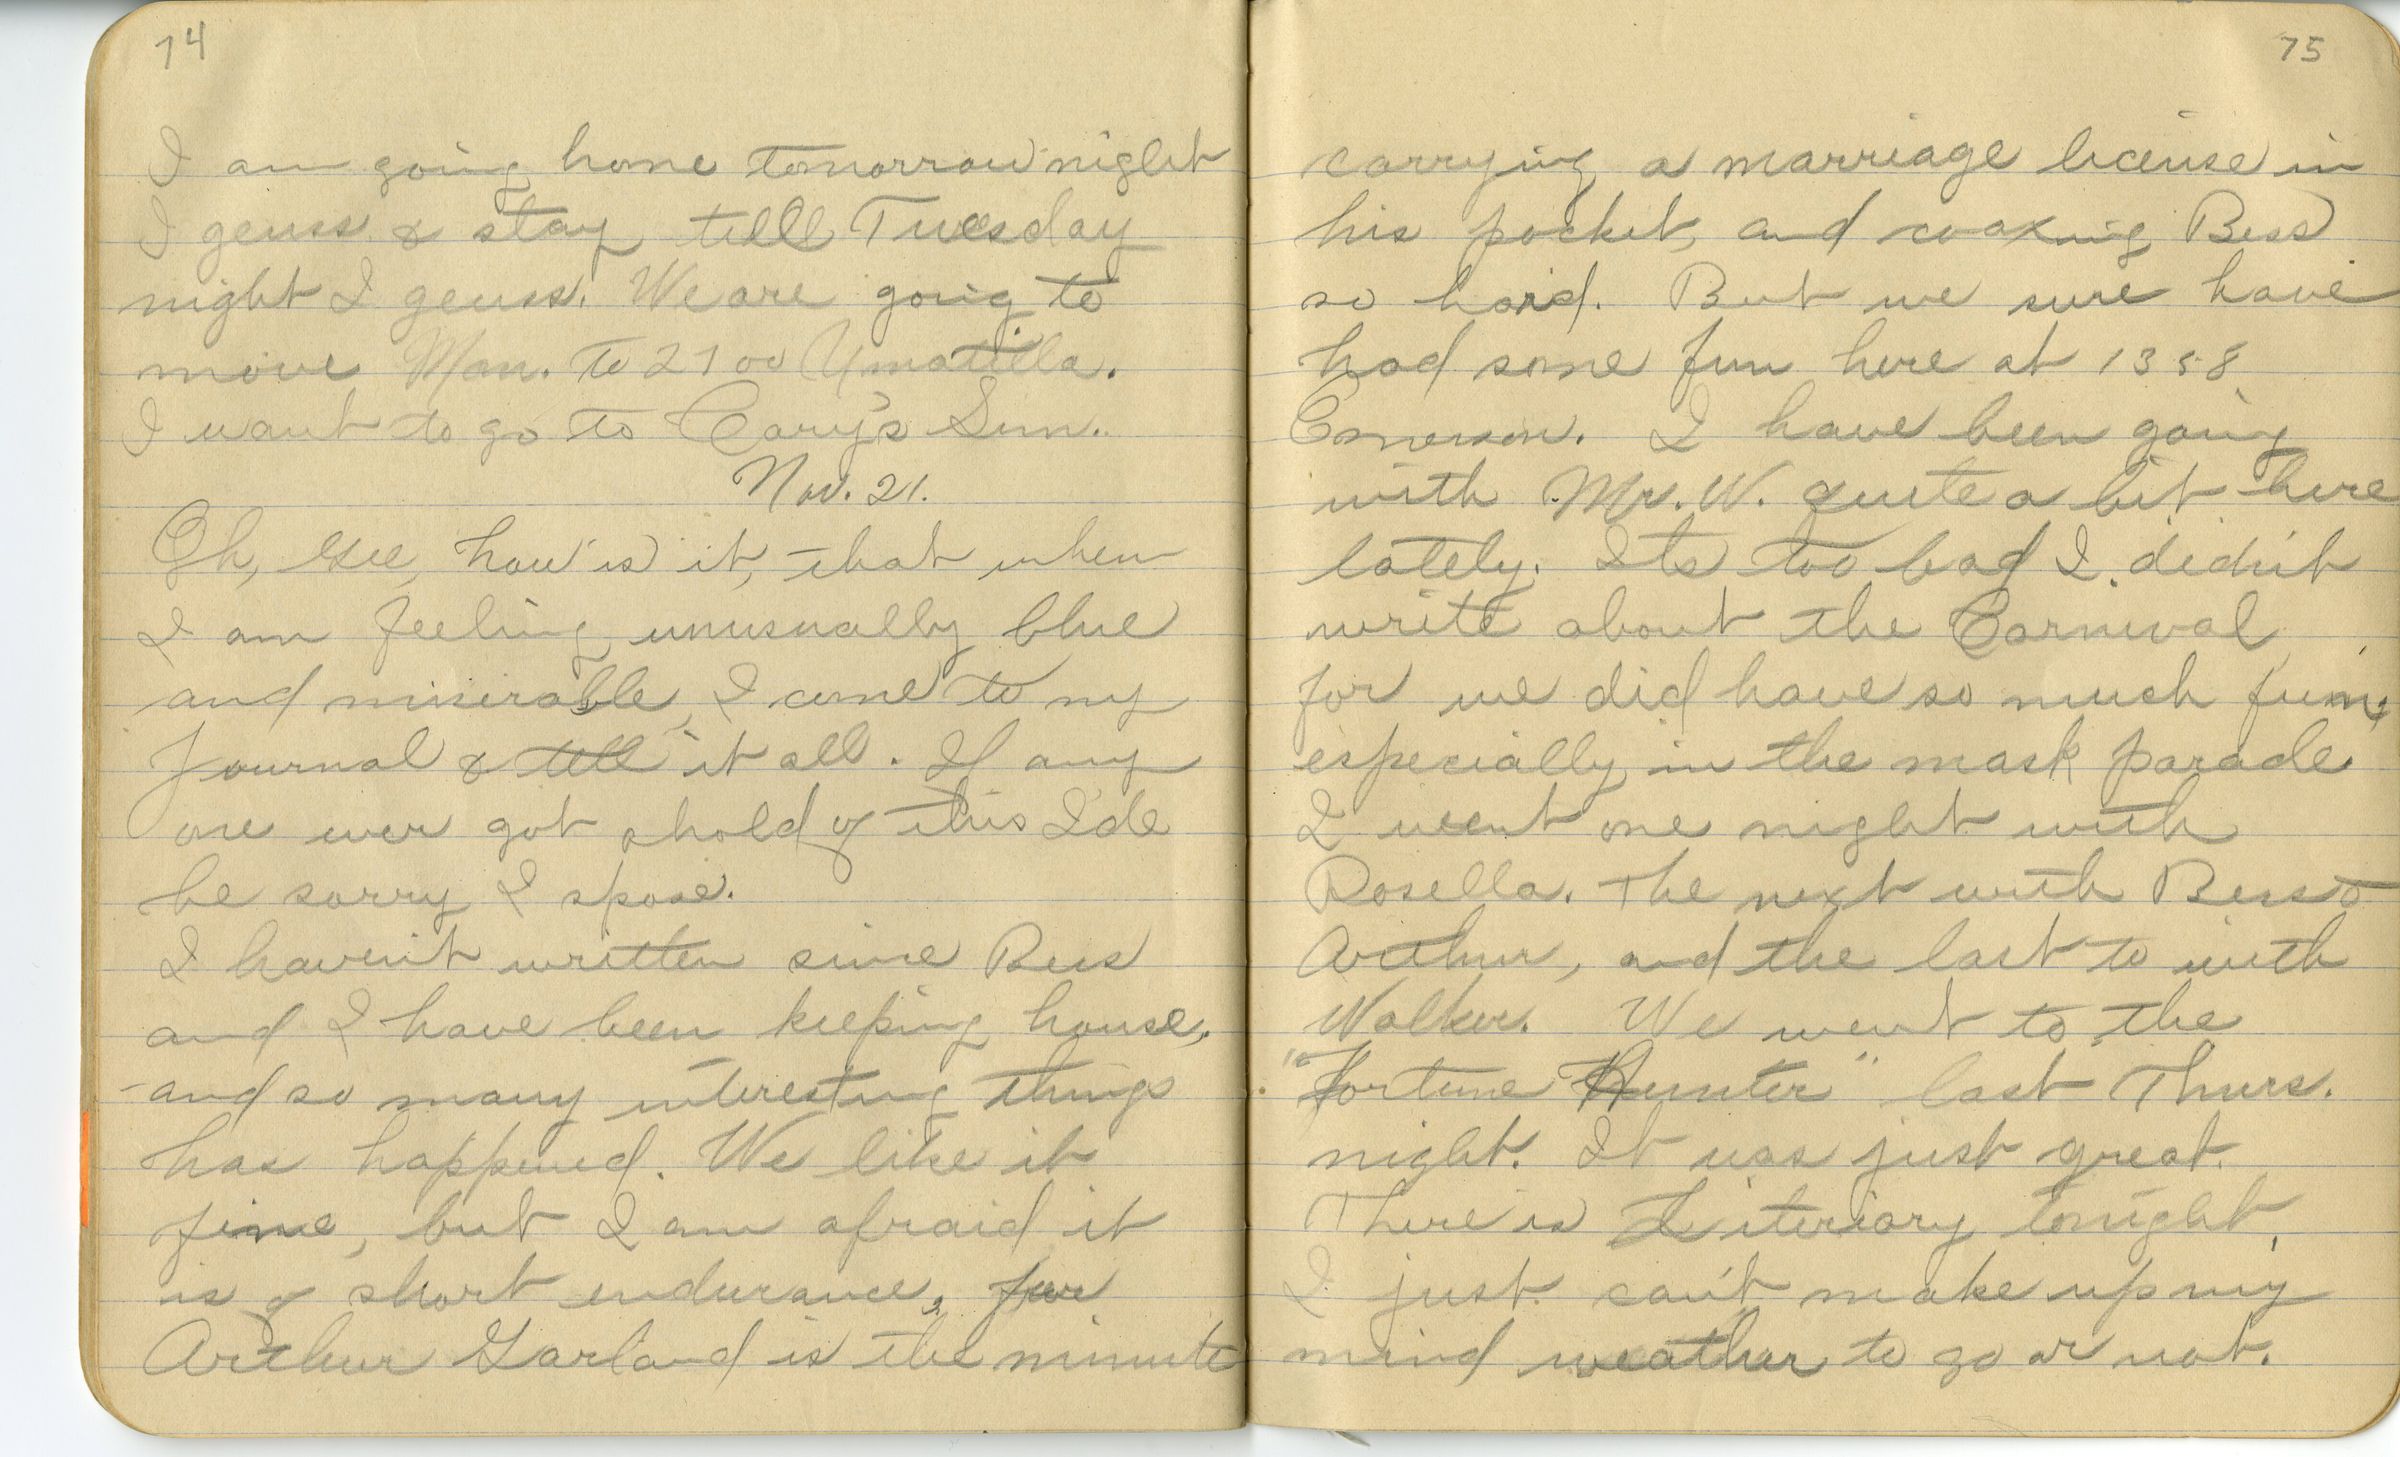 74
I am going home tomorrow night
I genss & stay till Tuesday
night I genss. We are going to
move Mon. to 2700 Umatilla.
I want to go to Cary's Sun.
Nov. 21.
Oh, Gee, how is it, that when
I am feeling unusually blue
and miserable, I come to my
Journal & tell it all. If any
one ever got ahold of this I'de
be sorry I spose.
I haven't written since Bess
and I have been keeping house,
and so many interesting things
has happened. We like it
fine, but I am afraid it
is of short endurance, for
Arthur Garland is the minute
75
carrying a marriage license in
his pocket, and coaxing Bess
so hard. But we sure have
had some fun here at 1358
Emerson. I have been going
with Mr. W. quite a bit here
lately. Its too bad I didn't
write about the Carnival
for we did have so much fun,
especially in the mask parade
I went one night with
Rosella. The next with Bess &
Arthur, and the last to with
Walker. We went to the
"Fortune Hunter" last Thurs.
night. It was just great.
There is Literiary tonight,
I just can't make up my
mind weather to go or not.